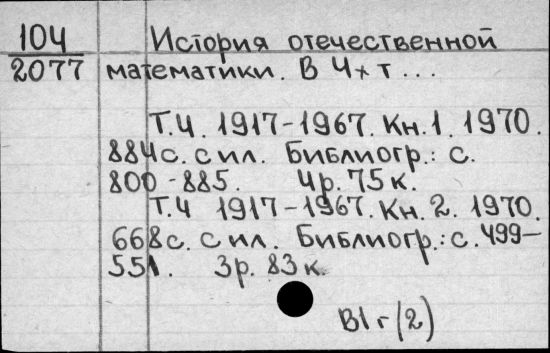 104
2077
История отечественной
математики. В 4х т...
Т.4. 1917-1967. Кн.1. 1970.
884с. с ил. Библиогр.: с.
800-885. 4р. 75к.
Т.4 1917-1967. Кн. 2. 1970.
668с. с ил. Библиогр.: с. 499-
551. 3р. 83к
В1г(2)